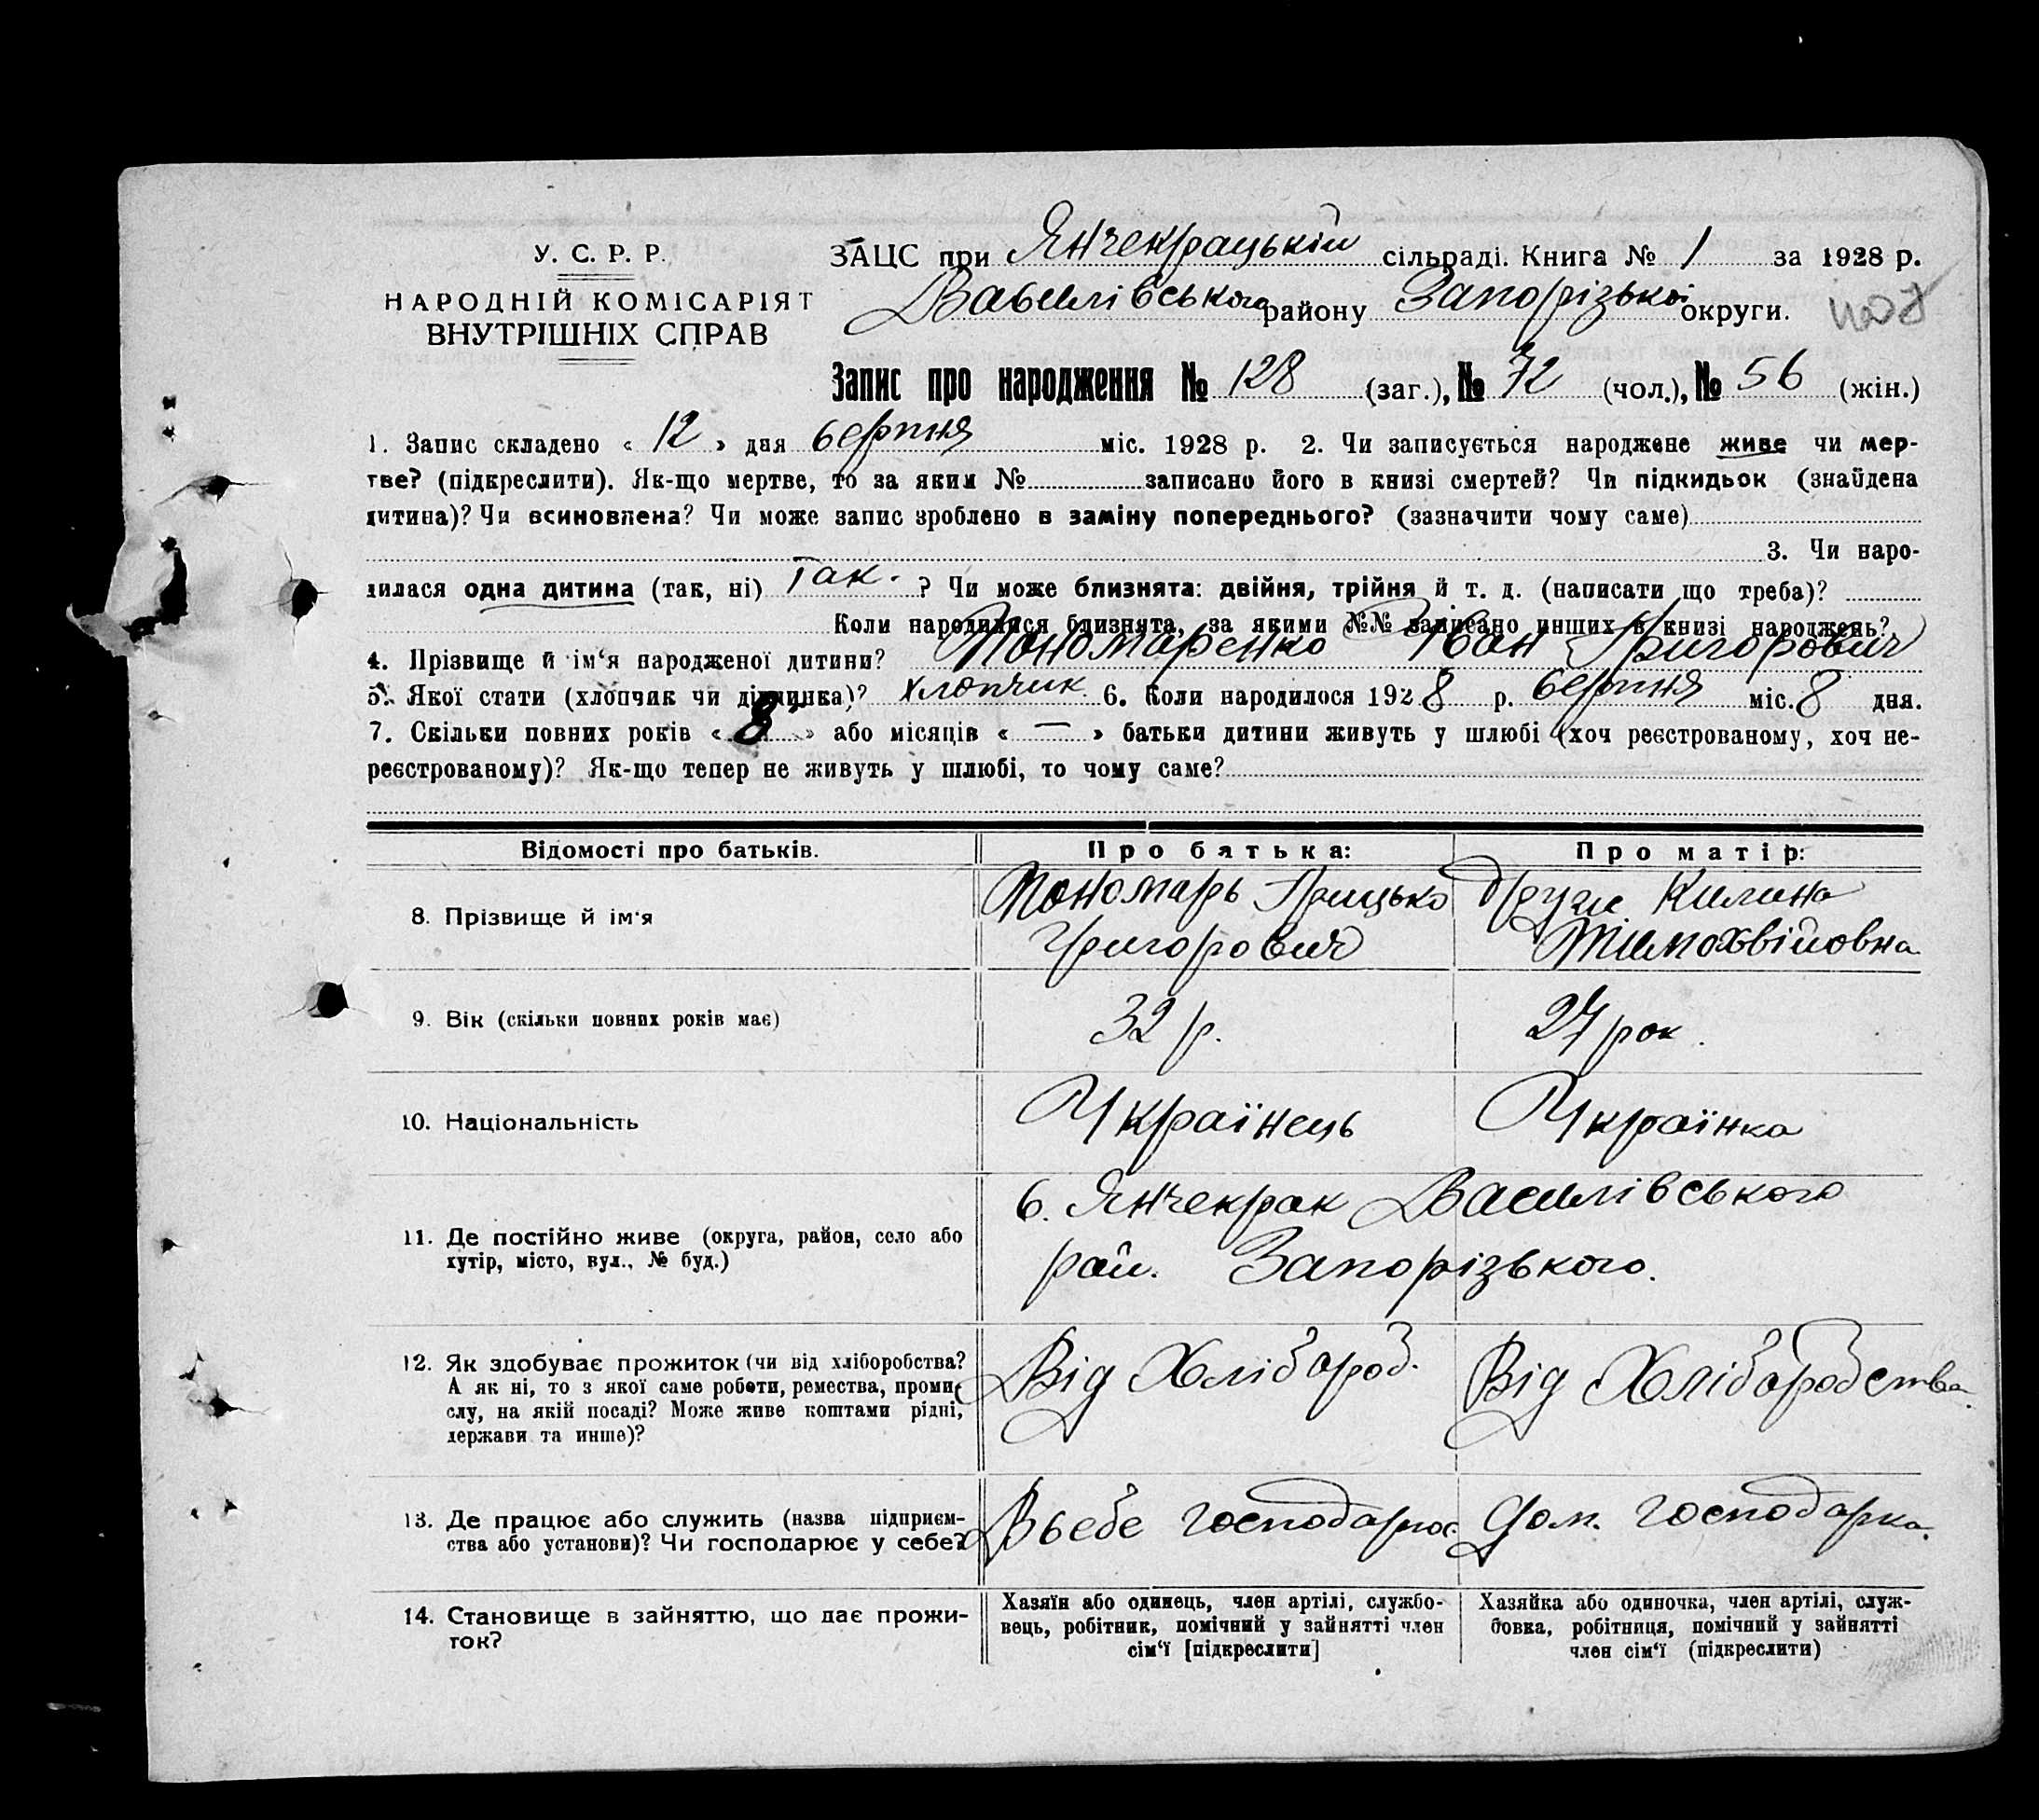 У. С. Р. Р.
НАРОДНІЙ КОМІСАРІЯТ
ВНУТРІШНІХ СПРАВ
ЗАЦС при Янчекрацькій сільраді. Книга № 1 за 1928 р.
Василівського району Запорізької округи.
Запис про народження № 128 (заг.), № 72 (чол.), № 56 (жін.)
1. Запис складено « 12 » дня серпня міс. 1928 р. 2. Чи записується народжене живе чи мер-
тве? (підкреслити). Як-що мертве, то за яким № записано його в книзі смертей? Чи підкидьок (знайдена
дитина)? Чи всиновлена? Чи може запис зроблено в заміну попереднього? (зазначити чому саме)
3. Чи наро-
дилася одна дитина (так, ні) Так. ? Чи може близнята: двійня, трійня й т. д. (написати що треба)?
Коли народилися близнята, за якими №№ записано инших в книзі народжень?
4. Прізвище й ім‘я народженої дитини? Пономаренко Іван Григорович
5. Якої стати (хлопчик чи дівчинка)? хлопчик 6. Коли народилося 1928 р. серпня міс. 8 дня.
7. Скільки повних років « 8 » або місяців « — » батьки дитини живуть у шлюбі (хоч реєстрованому, хоч не-
реєстрованому)? Як-що тепер не живуть у шлюбі, то чому саме?
Відомості про батьків. Про батька: Про матір:
8. Прізвище й ім‘я
Пономарь Грицько
Григорович
Килина
Тимохвійовна
9. Вік (скільки повних років має) 32 р. 27 рок.
10. Національність Українець Українка
11. Де постійно живе (округа, район, село або
хутір, місто, вул., № буд.)
с. Янчекрак Василівського
рай. Запорізького.
12. Як здобуває прожиток (чи від хліборобства?
А як ні, то з якої саме роботи, ремества, проми-
слу, на якій посаді? Може живе коштами рідні,
держави та инше)?
Від Хлібороб.
Від Хлібаробства.
13. Де працює або служить (назва підприєм-
ства або установи)? Чи господарює у себе?
В себе господарює
Дом. господарка.
14. Становище в зайняттю, що дає прожи-
ток?
Хазяїн або одинець, член артілі, службо-
вець, робітник, помічний у зайнятті член
сім‘ї [підкреслити]
Хазяйка або одиночка, член артілі, служ-
бовка, робітниця, помічний у зайнятті
член сім‘ї (підкреслити)